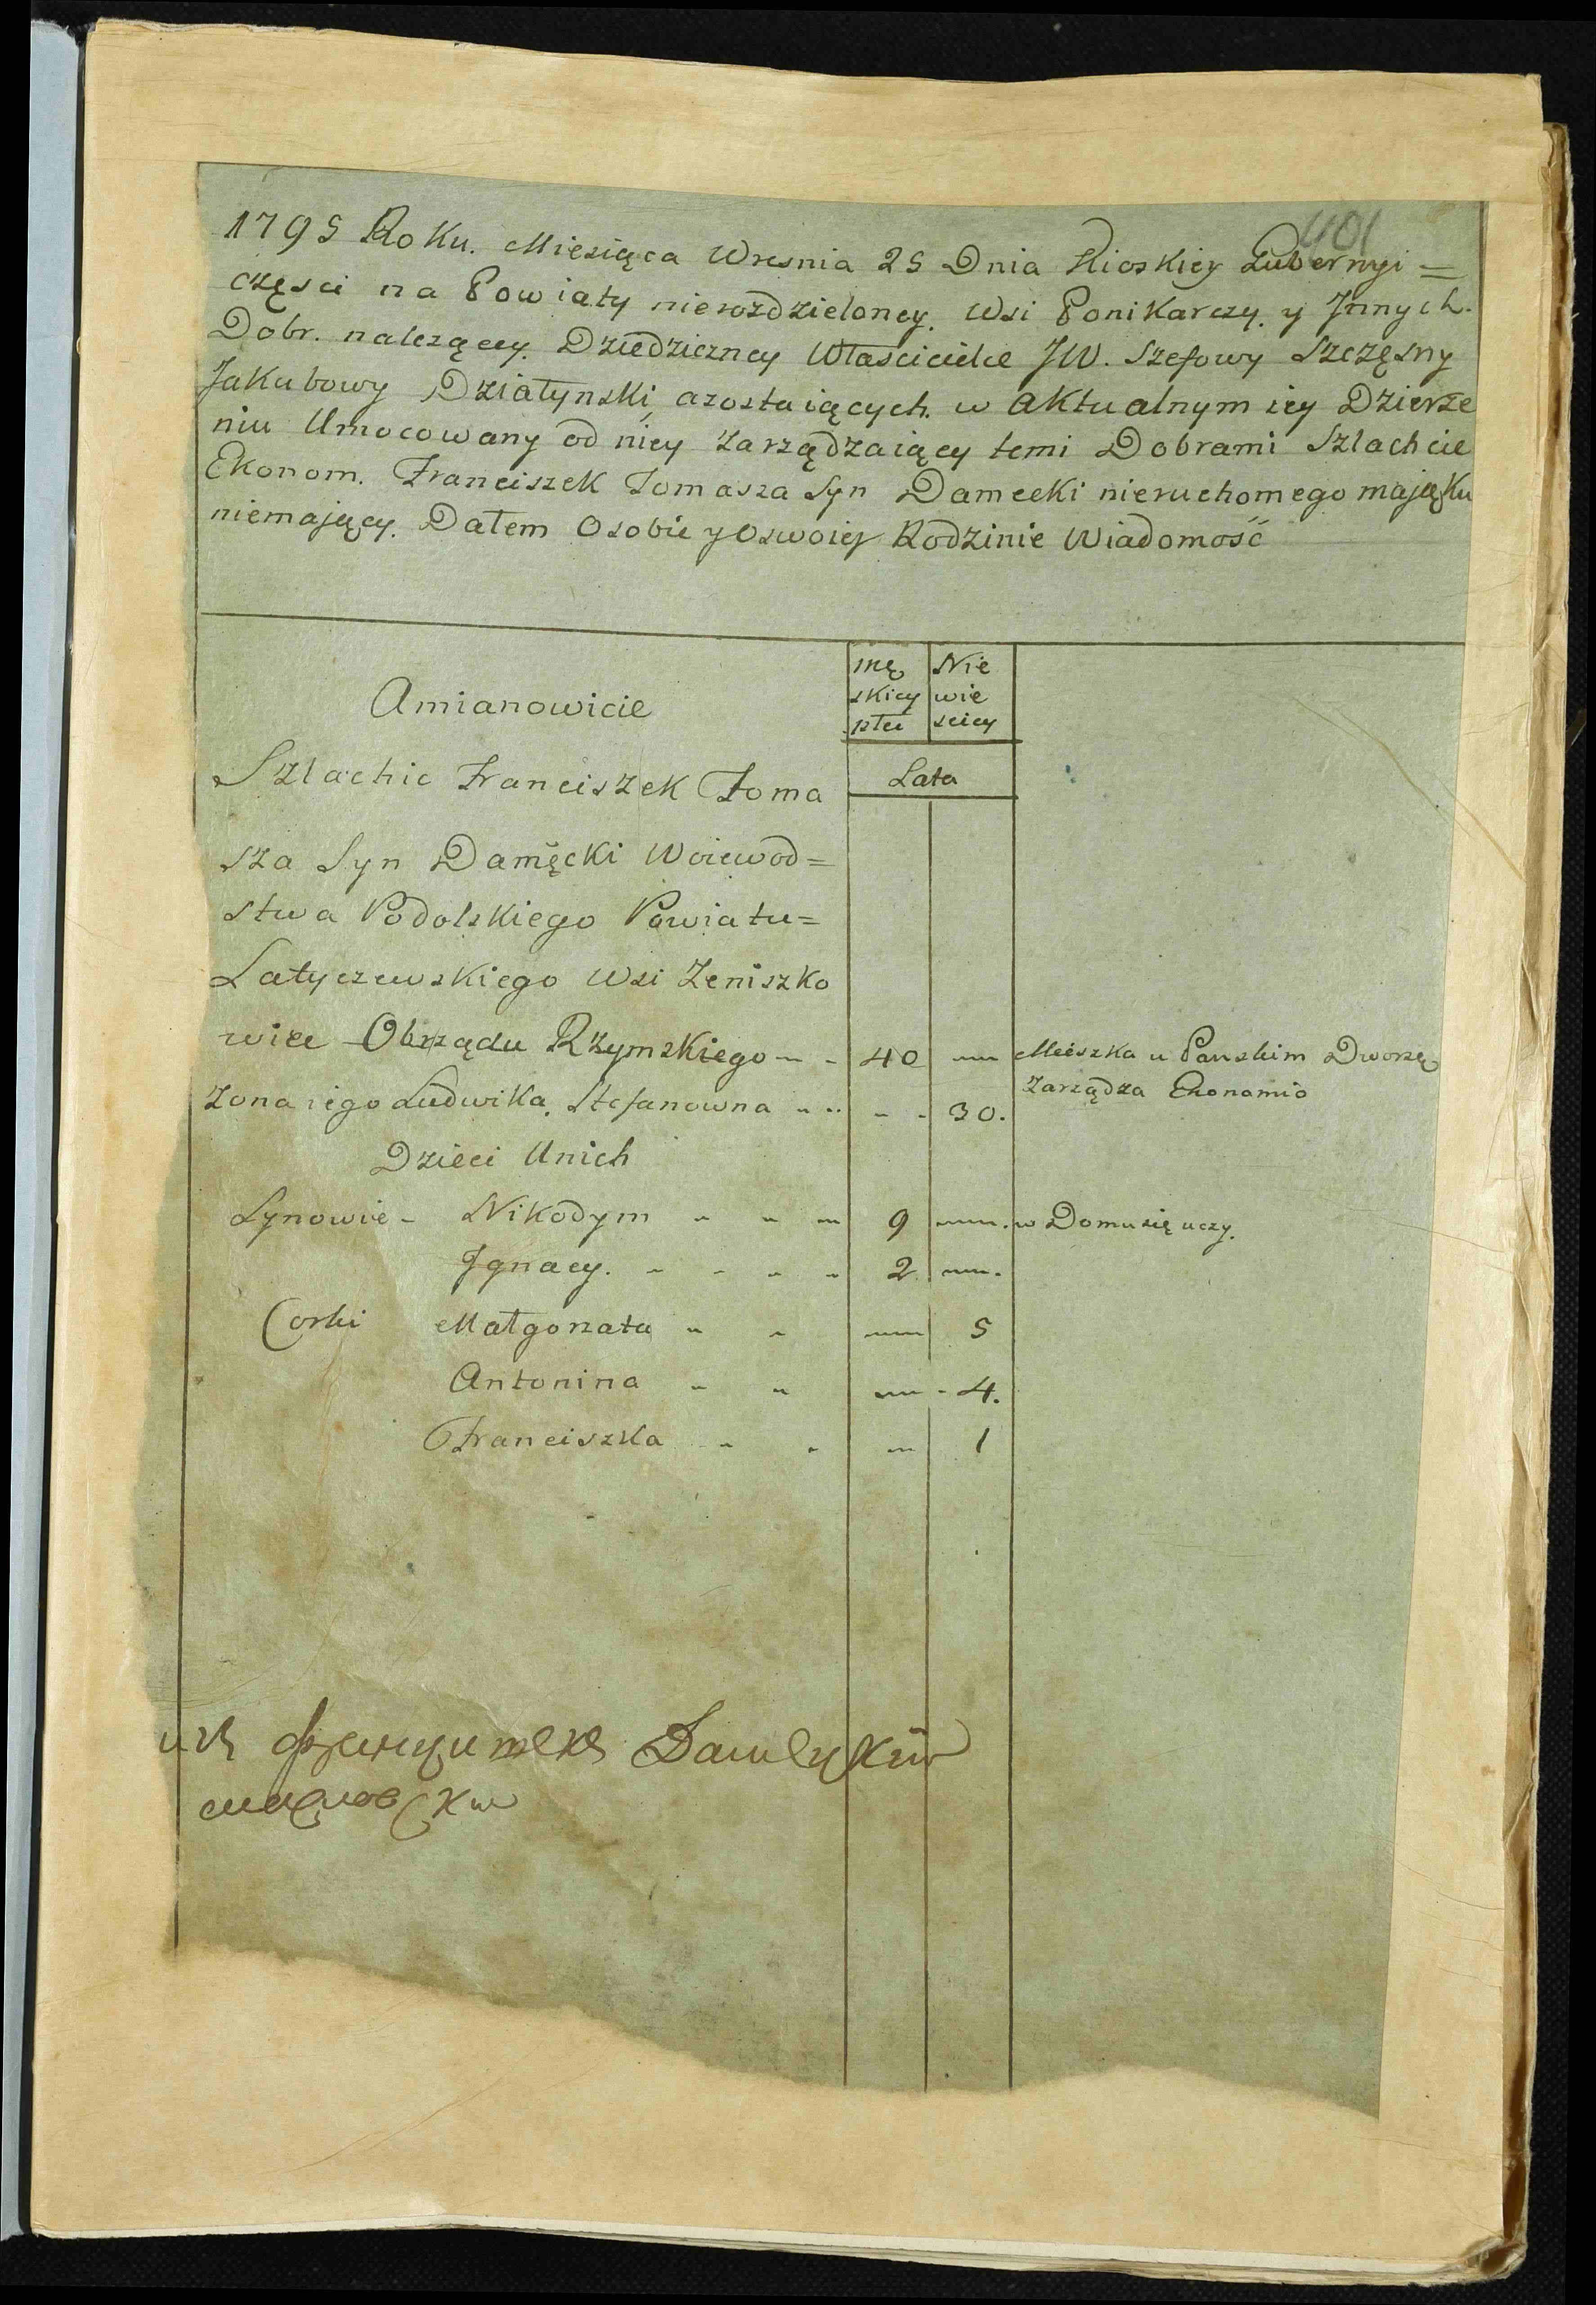 401
1795 Roku. Miesiąca Wresnia 25 Dnia Kioskiey Gubernyi =
częsci na Powiaty nierozdzieloney. Wsi Ponikarczy. y Jnnych.
Dobr. nalezącey. Dziedziczney Włascicielce JW. Szefowy Szczęsny
Jakubowy Działynski, azostaiących. w aktualnym iey Dzierze
niu Umocowany od niey Zarządzaiący temi Dobrami Szlachcic
Ekonom. Franciszek Tomasza Syn Damecki nieruchomego mająku
niemający. Dałem Osobie y Oswoiey Rodzinie Wiadomość
Amianowicie
mę Nie
skiey wie
płci sciey
Lata
Szlachic Franciszek Toma
sza Syn Damęcki Woiewod=
stwa Podolskiego Powiatu=
Latyczewskiego Wsi Zeniszko
wice Obrządu Rzymskiego - - 40 Mieszka u Panskim Dworzę
Zarządza Ekonomio
Zona iego Ludwika. Stefanowna - - - - 30.
Dzieci Unich
Synowie - Nikodym - - - 9 w Domu się uczy.
Jgnacy. - - - - 2
Corki Małgorzata - - 5
Antonina - - - 4.
Franciszka - - 1
Францишекъ Дамецкий